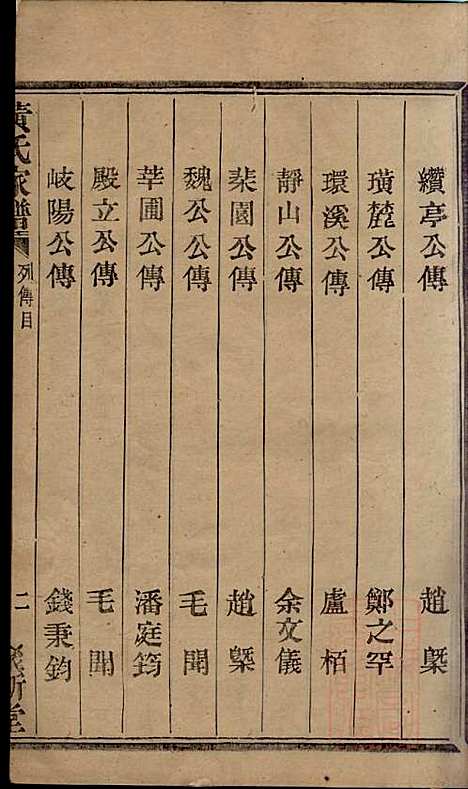 纘亭公傳 趙㮣
璜麓公傳 鄭之罕
環溪公傳 盧栢
靜山公傳 余文儀
棐園公傳 趙㮣
魏公公傳 毛開
莘圃公傳 潘庭筠
殿立公傳 毛開
岐陽公傳 錢秉鈞
黃氏家譜 列傳目 二